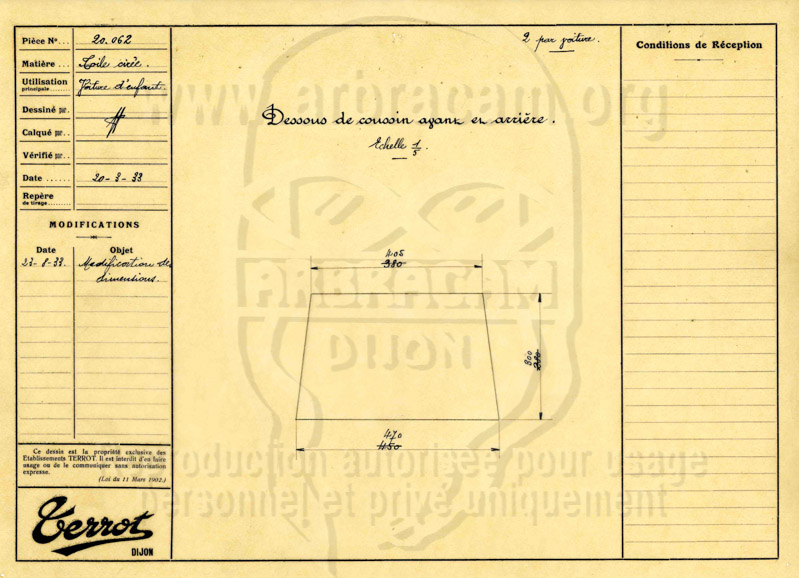 Pièce Nº... 20.062
Matière.. Toile cirée.
Utilisation principale...... Voiture d'enfant.
Dessiné par.
Calqué par..
Vérifié par..
Date ...... 20-3-33
Repère de tirage.........
MODIFICATIONS
Date Objet
23-8-33. Modification des
dimensions.
Ce dessin est la propriété exclusive des
Etablissements TERROT. Il est interdit d'en faire
usage ou de le communiquer sans autorisation
expresse.
(Loi du 11 Mars 1902.)
Terrot
DIJON
2 par voiture.
Dessous de coussin avant et arrière.
Echelle 1/5.
405
380
300
280
470
450
Conditions de Réception
www.arbracam.org
ARBRACAM
DIJON
Reproduction autorisée pour usage
personnel et privé uniquement